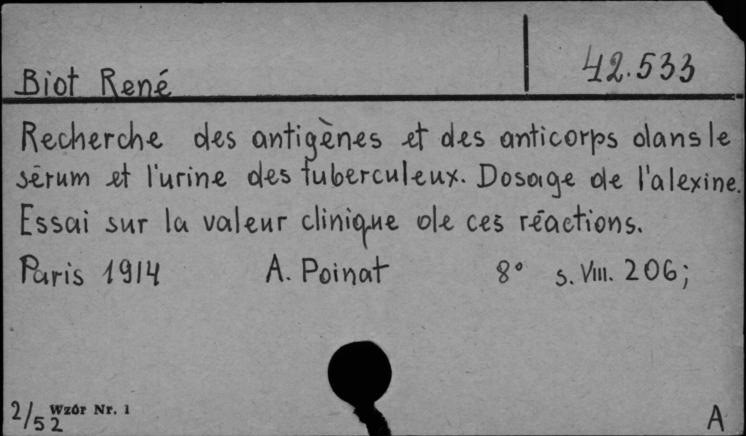 42.533
Biot René
Recherche des antigènes et des anticorps dans le
sérum et l'urine des tuberculeux. Dosage de l'alexine.
Essai sur la valeur clinique de ces réactions.
Paris 1914 A. Poinat 8° s. VIII. 206;
2/52 Wzór Nr. 1 A